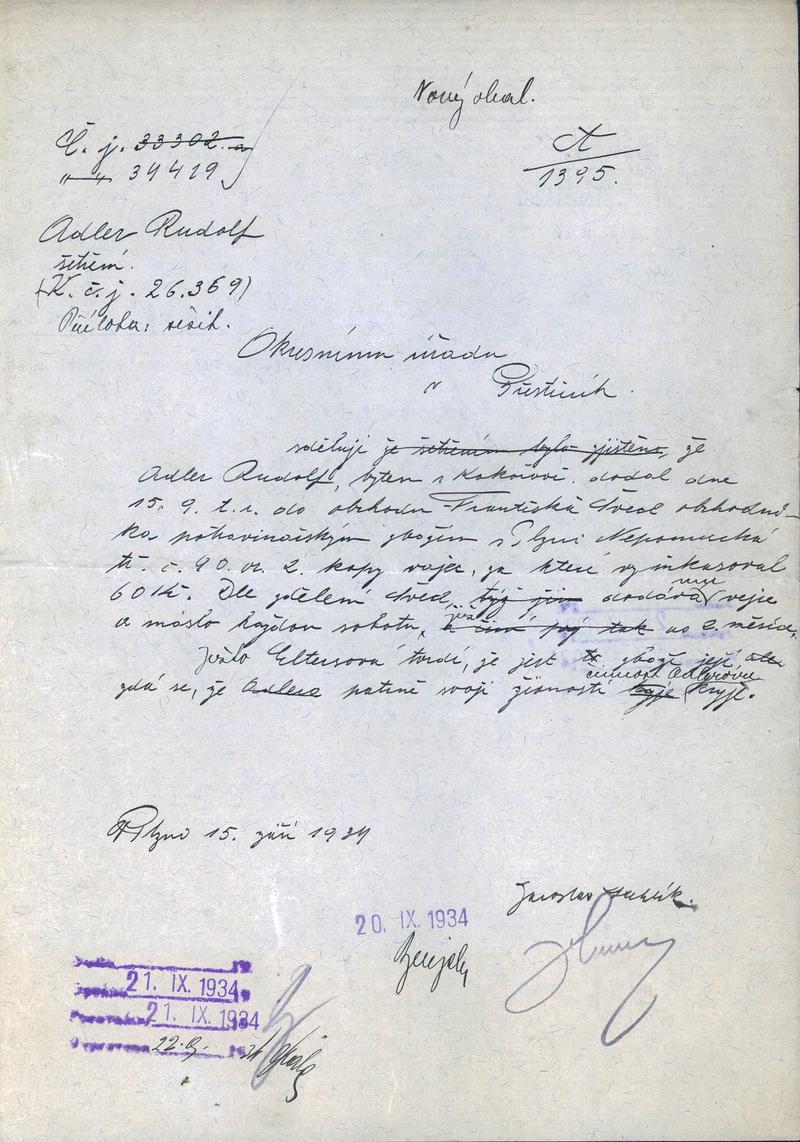 Nový obal.
Č. j. 33302
" " 34419
A
1395.
Adler Rudolf
šetření.
(K. č. j. 26.369)
Příloha: sešit.
Okresnímu úřadu
v Přešticích.
sděluji že šetřením bylo zjištěno, že
Adler Rudolf, bytem v Kokořově dodal dne
15. 9. t. r. do obchodu Františka Švec obchodní-
ka potravinářským zbožím v Plzni Nepomucká
tř. č. 90. 2. kopy vajec, za které vyinkasoval
60 Kč. Dle sdělení Švec, týž již dodává vejce
a máslo každou sobotu, již a činí prý tak as 2. měsíce.
Ježto Eltersová tvrdí, že jest to zboží její
zdá se, že Adlera patrně svojí živností činnost Adlerovu kryje.
Plzni 15. září 1934
Jaroslav
20. IX. 1934
21. IX. 1934
21. IX. 1934
22. 9. 34